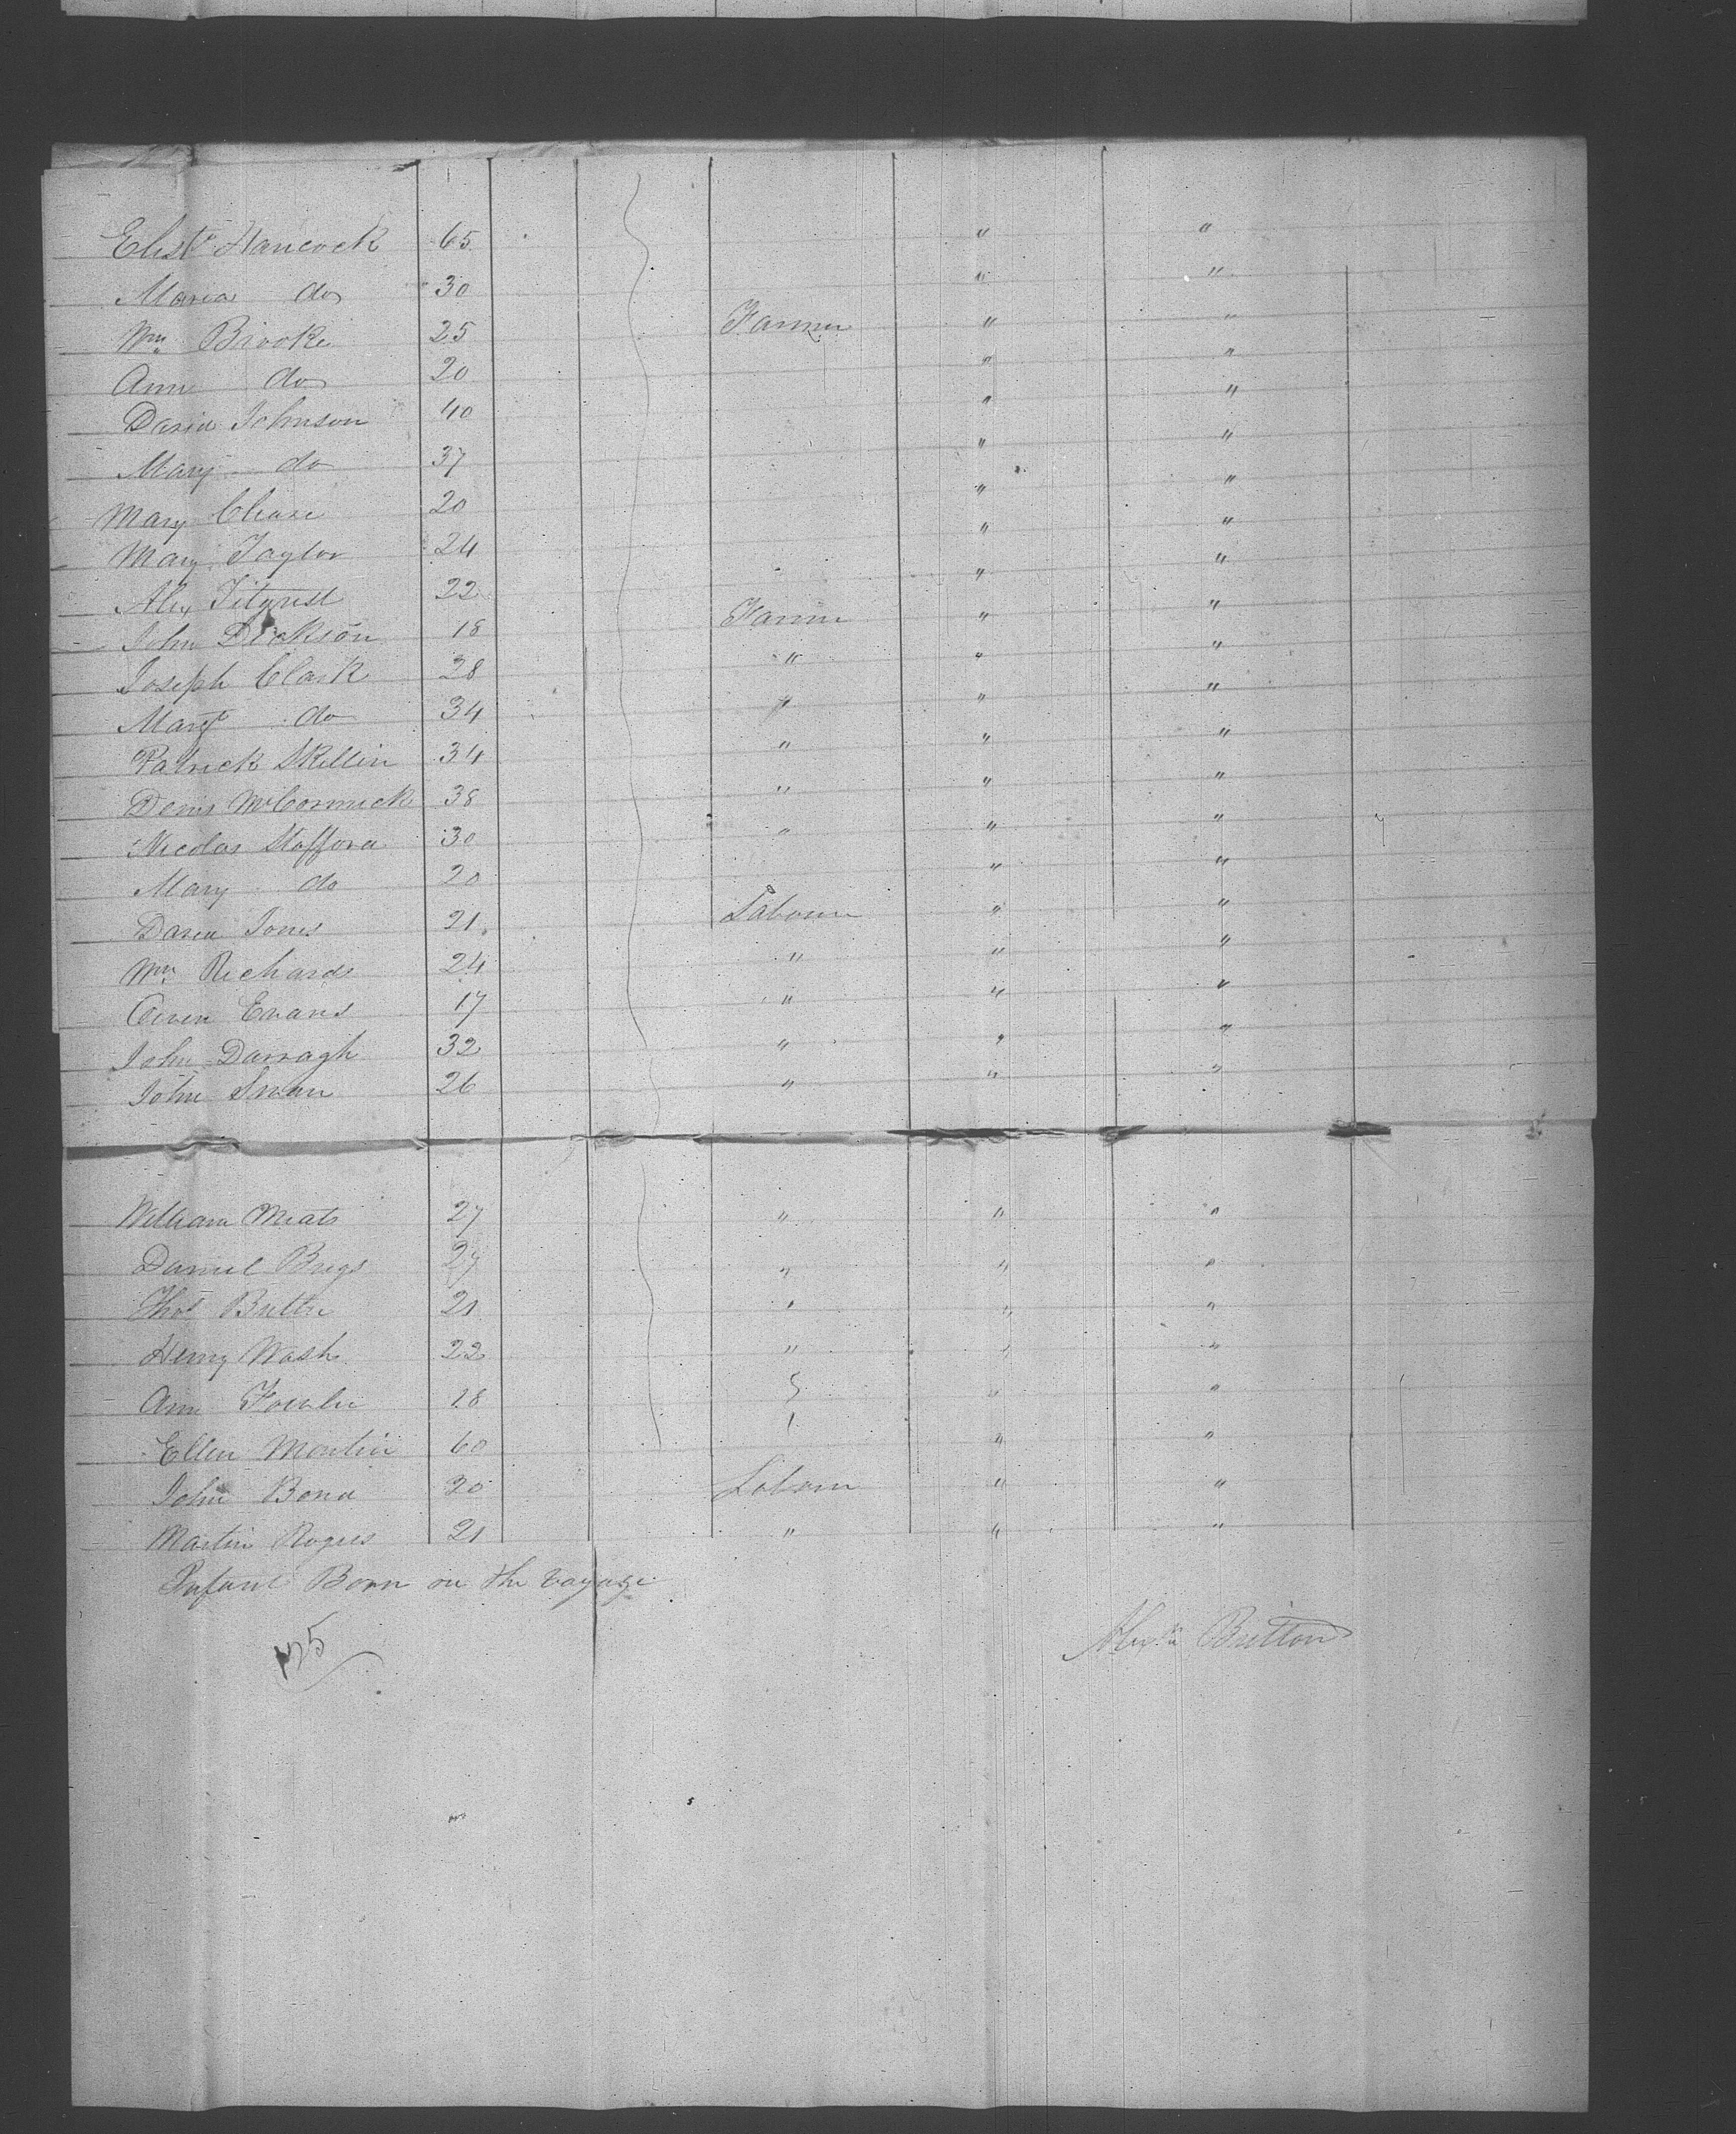 Elisth Hancock 65 " "
Maria do 30 " "
Wm Brooke 25 Farmer " "
Ann do 20 " "
David Johnson 40 " "
Mary do 37 " "
Mary Chase 20 " "
Mary Taylor 24 " "
Alex 22 " "
John Dickson 18 Farmer " "
Joseph Clark 28 " " "
Margt do 34 " " "
Patrick Skillin 34 " " "
Denis McCormick 38 " " "
Nicolas Stafford 30 " " "
Mary do 20 " "
David Jones 21 Labourer " "
Wm Richards 24 " " "
Owen Evans 17 " " "
John Darragh 32 " " "
John Swan 26 " " "
William Meats 27 " " "
Daniel Brigs 27 " " "
Thos Butler 21 " " "
Henry Nash 22 " " "
Ann Fowler 18 " "
Ellen 60 " "
John Bond 20 Labourer " "
Martin Rogers 21 " " "
Infant Born on the Voyage
Alexdr Britton